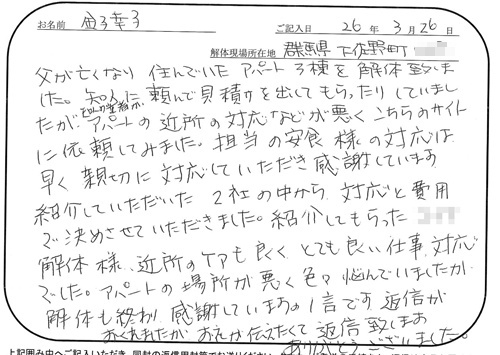 お名前
ご記入日 26年3月26日
解体現場所在地 群馬県下佐野町
父が亡くなり住んでいたアパート3棟を解体致しま
した。知人に頼んで見積りを出してもらったりしていまし
たが、アパートの近所の対応などが悪くこちらのサイト
に依頼してみました。担当の安食様の対応は
早く親切に対応していただき感謝しています
紹介していただいた2社の中から、対応と費用
で決めさせていただきました。紹介してもらった
解体様、近所のケアも良くとても良い仕事、対応
でした。アパートの場所が悪く色々悩んでいましたが
解体も終わり感謝していますの1言です返信が
おくれましたがお礼が伝えたくて返信致します
ありがとうございました。
上記囲み中へご記入いただき、同封の返信用封筒でお送りください